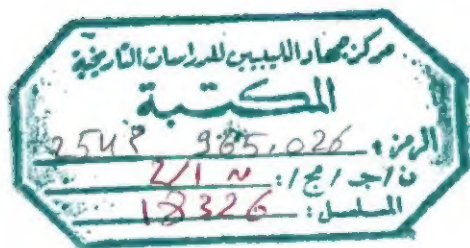 مركز جهاد الليبيين للدراسات التاريخية
المكتبة
الرمز: 965.026 م 254
ن / جـ / مج /: ن 2/1
المسلسل: 18326